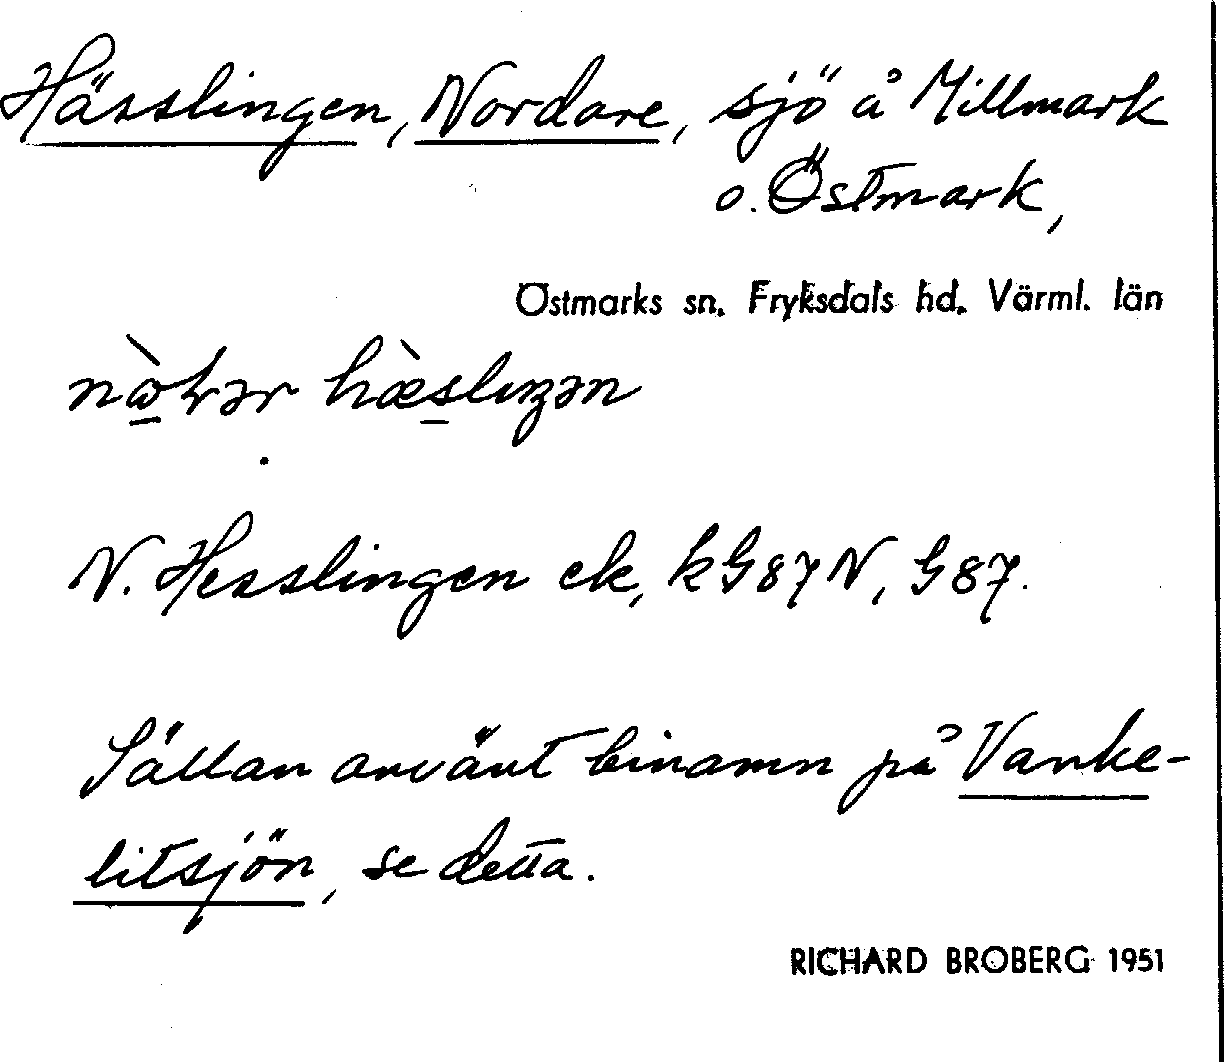 Hässlingen, Nordare, sjö å Millmark
o. Östmark,
Östmarks sn. Fryksdals hd. Värml. län
hæslıŋən
N. Hesslingen ek, k G87 N, G 87.
Sällan använt binamn på Vanke-
litsjön, se detta.
RICHARD BROBERG 1951